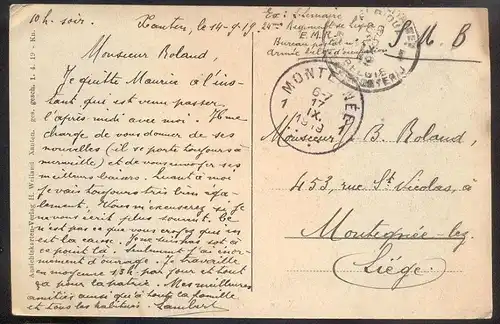 10 h. soir.
Xanten, le 14-9-19
Monsieur Boland,
Je quitte Maurice à l'ins-
tant qui est venu passer
l'après midi avec moi. Il me
charge de vous donner de ses
nouvelles (il se porte toujours à
merveille) et de vous envoyer ses
meilleurs baisers. Quant à moi
je vais toujours très bien éga-
lement. Vous m'excuserez si je ne
vous écrit plus souvent. Ce
n'est pas que vous croyez que
est la cause. Je ne suis pas sot à
ce point là. Seulement j'ai énor-
mément d'ouvrage. Je travaille
en moyenne 13 h. par jour et tout
ça pour la patrie. Mes meilleures
amitiés ainsi qu'à toute la famille
et tous les habitués. Lambert
Ansichtskarten-Verlag H. Weiland Xanten. ges. gesch. 1. 4. 19 - Kn.
Ex:
24me Régiment de Ligne
E. M. R.
Bureau postal
Armée belge d'occupation
S. M. B
BELGIE
MONTEGNÉE
6-7
17
IX
1919
1 1
Monsieur B. Boland,
453, rue St Nicolas, à
Montegnée-lez-
Liége.